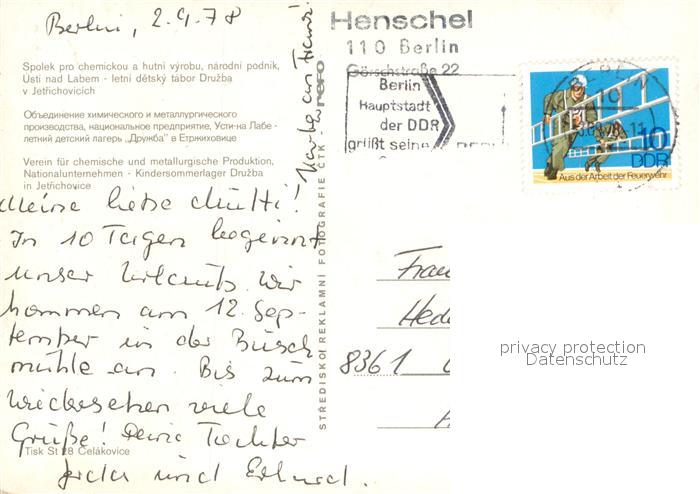 Berlin, 2.9.78
Spolek pro chemickou a hutní výrobu, národní podnik,
Ústí nad Labem - letní dětský tábor Družba
v Jetřichovicích
Объединение химического и металлургического
производства, национальное предприятие, Усти-на Лабе -
летний детский лагерь „Дружба" в Етржиховице
Verein für chemische und metallurgische Produktion,
Nationalunternehmen - Kindersommerlager Družba
in Jetřichovice
Meine liebe Mutti!
In 10 Tagen beginnt
unser Urlaub. Wir
kommen am 12. Sep-
tember in der Busch
mühle an. Bis zum
wiedersehen viele
Grüße! Deine Tochter
und
Tisk St 28 Čelákovice
Karte an
STŘEDISKO REKLAMNÍ FOTOGRAFIE ČTK
Henschel
110 Berlin
Görschstraße 22
Berlin
Hauptstadt
der DDR
grüßt seine
10
DDR
Aus der Arbeit der Feuerwehr
Frau
Hed
8361
privacy protection
Datenschutz